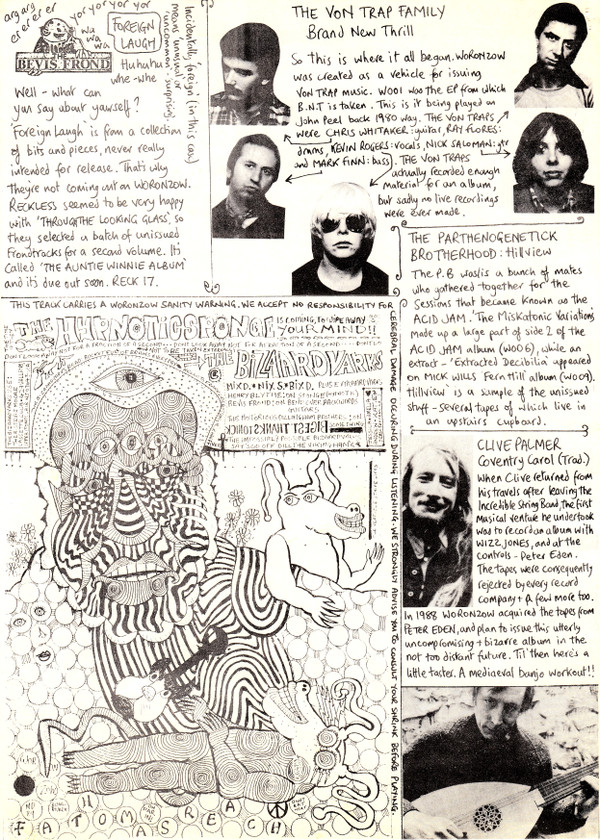 argarg
er er er er
yor yor yor yor
wa
wa
wa
FOREIGN
LAUGH
THE
BEVIS FROND
Huhuhu
whe-whe
Well - what can
yun say about yawself?
'Foreign Laugh is from a collection
of bits and pieces, never really
intended for release. That's why
they're not coming out on WORONZOW.
RECKLESS seemed to be very happy
with 'THROUGH THE LOOKING GLASS', so
they selected a batch of unissued
Frondtracks for a second volume. It's
called 'THE AUNTIE WINNIE ALBUM'
and it's due out soon. RECK 17.
Incidentally 'foreign' (in this case)
means unusual or
uncommon - surprising.
THE VON TRAP FAMILY
Brand New Thrill
So this is where it all began. WORONZOW
was created as a vehicle for issuing
VON TRAP music. W001 was the EP from which
B.N.T is taken. This is it being played on
John Peel back 1980 way. THE VON TRAPS
were CHRIS WHITAKER: guitar, RAY FLORES:
drums, KEVIN ROGERS: vocals, NICK SALOMAN: gtr
and MARK FINN: bass. THE VON TRAPS
actually recorded enough
material for an album,
but sadly no live recordings
were ever made.
THE PARTHENOGENETICK
BROTHERHOOD: Hillview
The P.B was/is a bunch of mates
who gathered together for the
Sessions that became known as the
ACID JAM. 'The Miskatonic Variations'
made up a large part of side 2 of the
ACID JAM album (W006), while an
extract - 'Extracted Decibilia' appeared
on MICK WILLS 'Fern Hill' album (W009).
Hillview is a sample of the unissued
stuff - several tapes of which live in
an upstairs cupboard.
CLIVE PALMER
Coventry Carol (Trad.)
When Clive returned from
his travels after leaving the
Incredible String Band, the first
Musical venture he undertook
was to record an album with
WIZZ JONES, and at the
controls - Peter Eden.
The tapes were consequently
rejected by every record
company + a few more too.
In 1988 WORONZOW acquired the tapes from
PETER EDEN, and plan to issue this utterly
uncompromising + bizarre album in the
not too distant future. Til then here's a
little taster. A mediaeval banjo workout!!
THIS TRACK CARRIES A WORONZOW SANITY WARNING. WE ACCEPT NO RESPONSIBILITY FOR
CEREBRAL DAMAGE OCCURING DURING LISTENING. WE STRONGLY ADVISE YOU TO CONSULT YOUR SHRINK BEFORE PLAYING.
THE HYPNOTIC SPONGE
is coming to wipe away
YOUR MIND!!
THE BILLIARD YARKS
MIX.D. + NIX.S + BIX.D.
FATOMAS REACH